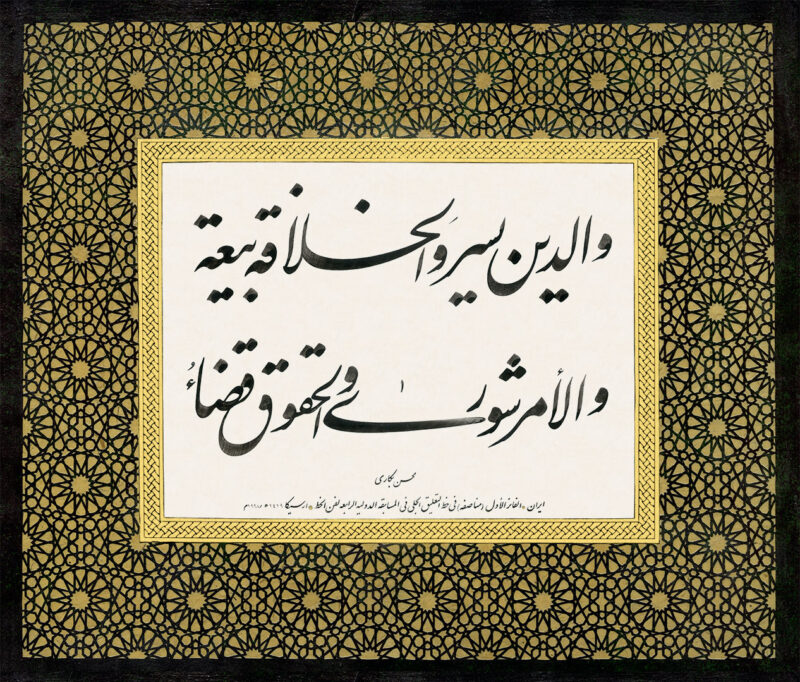 والدين يسر والخلافة بيعة
والأمر شورى والحقوق قضاءُ
محسن بكارى
ايران * الفائز الأول (مناصفة) فى خط التعليق الجلى فى المسابقة الدولية الرابعة لفن الخط * ارسيكا